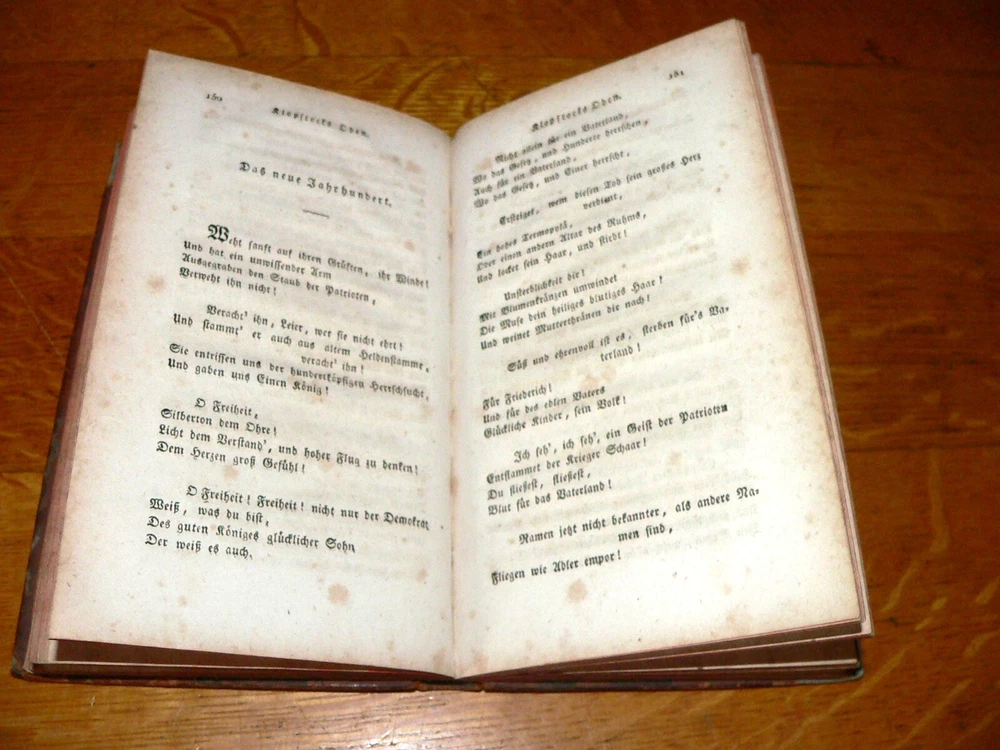 150
Klopstocks Oden.
Das neue Jahrhundert.
Weht sanft auf ihren Grüften, ihr Winde!
Und hat ein unwissender Arm
Ausgegraben den Staub der Patrioten,
Verweht ihn nicht!
Veracht' ihn, Leier, wer sie nicht ehrt!
Und stammt' er auch aus altem Heldenstamme,
veracht' ihn!
Sie entrissen uns der hundertköpfigen Herrschsucht,
Und gaben uns Einen König!
O Freiheit,
Silberton dem Ohre!
Licht dem Verstand', und hoher Flug zu denken!
Dem Herzen groß Gefühl!
O Freiheit! Freiheit! nicht nur der Demokrat
Weiß, was du bist,
Des guten Königes glücklicher Sohn
Der weiß es auch.
151
Klopstocks Oden.
Nicht allein für ein Vaterland,
Wo das Gesetz, und Hunderte herrschen,
Auch für ein Vaterland,
Wo das Gesetz, und Einer herrscht,
Ersteiget, wem diesen Tod sein großes Herz
verdient,
Ein hohes Termopylä,
Oder einen andern Altar des Ruhms,
Und locket sein Haar, und stirbt!
Unsterblichkeit dir!
Mit Blumenkränzen umwindet
Die Muse dein heiliges blutiges Haar!
Und weinet Mutterthränen dir nach!
Süß und ehrenvoll ist es, sterben für's Va-
terland!
Für Friederich!
Und für des edlen Vaters
Glückliche Kinder, sein Volk!
Ich seh', ich seh', ein Geist der Patrioten
Entflammet der Krieger Schaar!
Du fließest, fließest,
Blut für das Vaterland!
Namen jetzt nicht bekannter, als andre Na-
men sind,
Fliegen wie Adler empor!